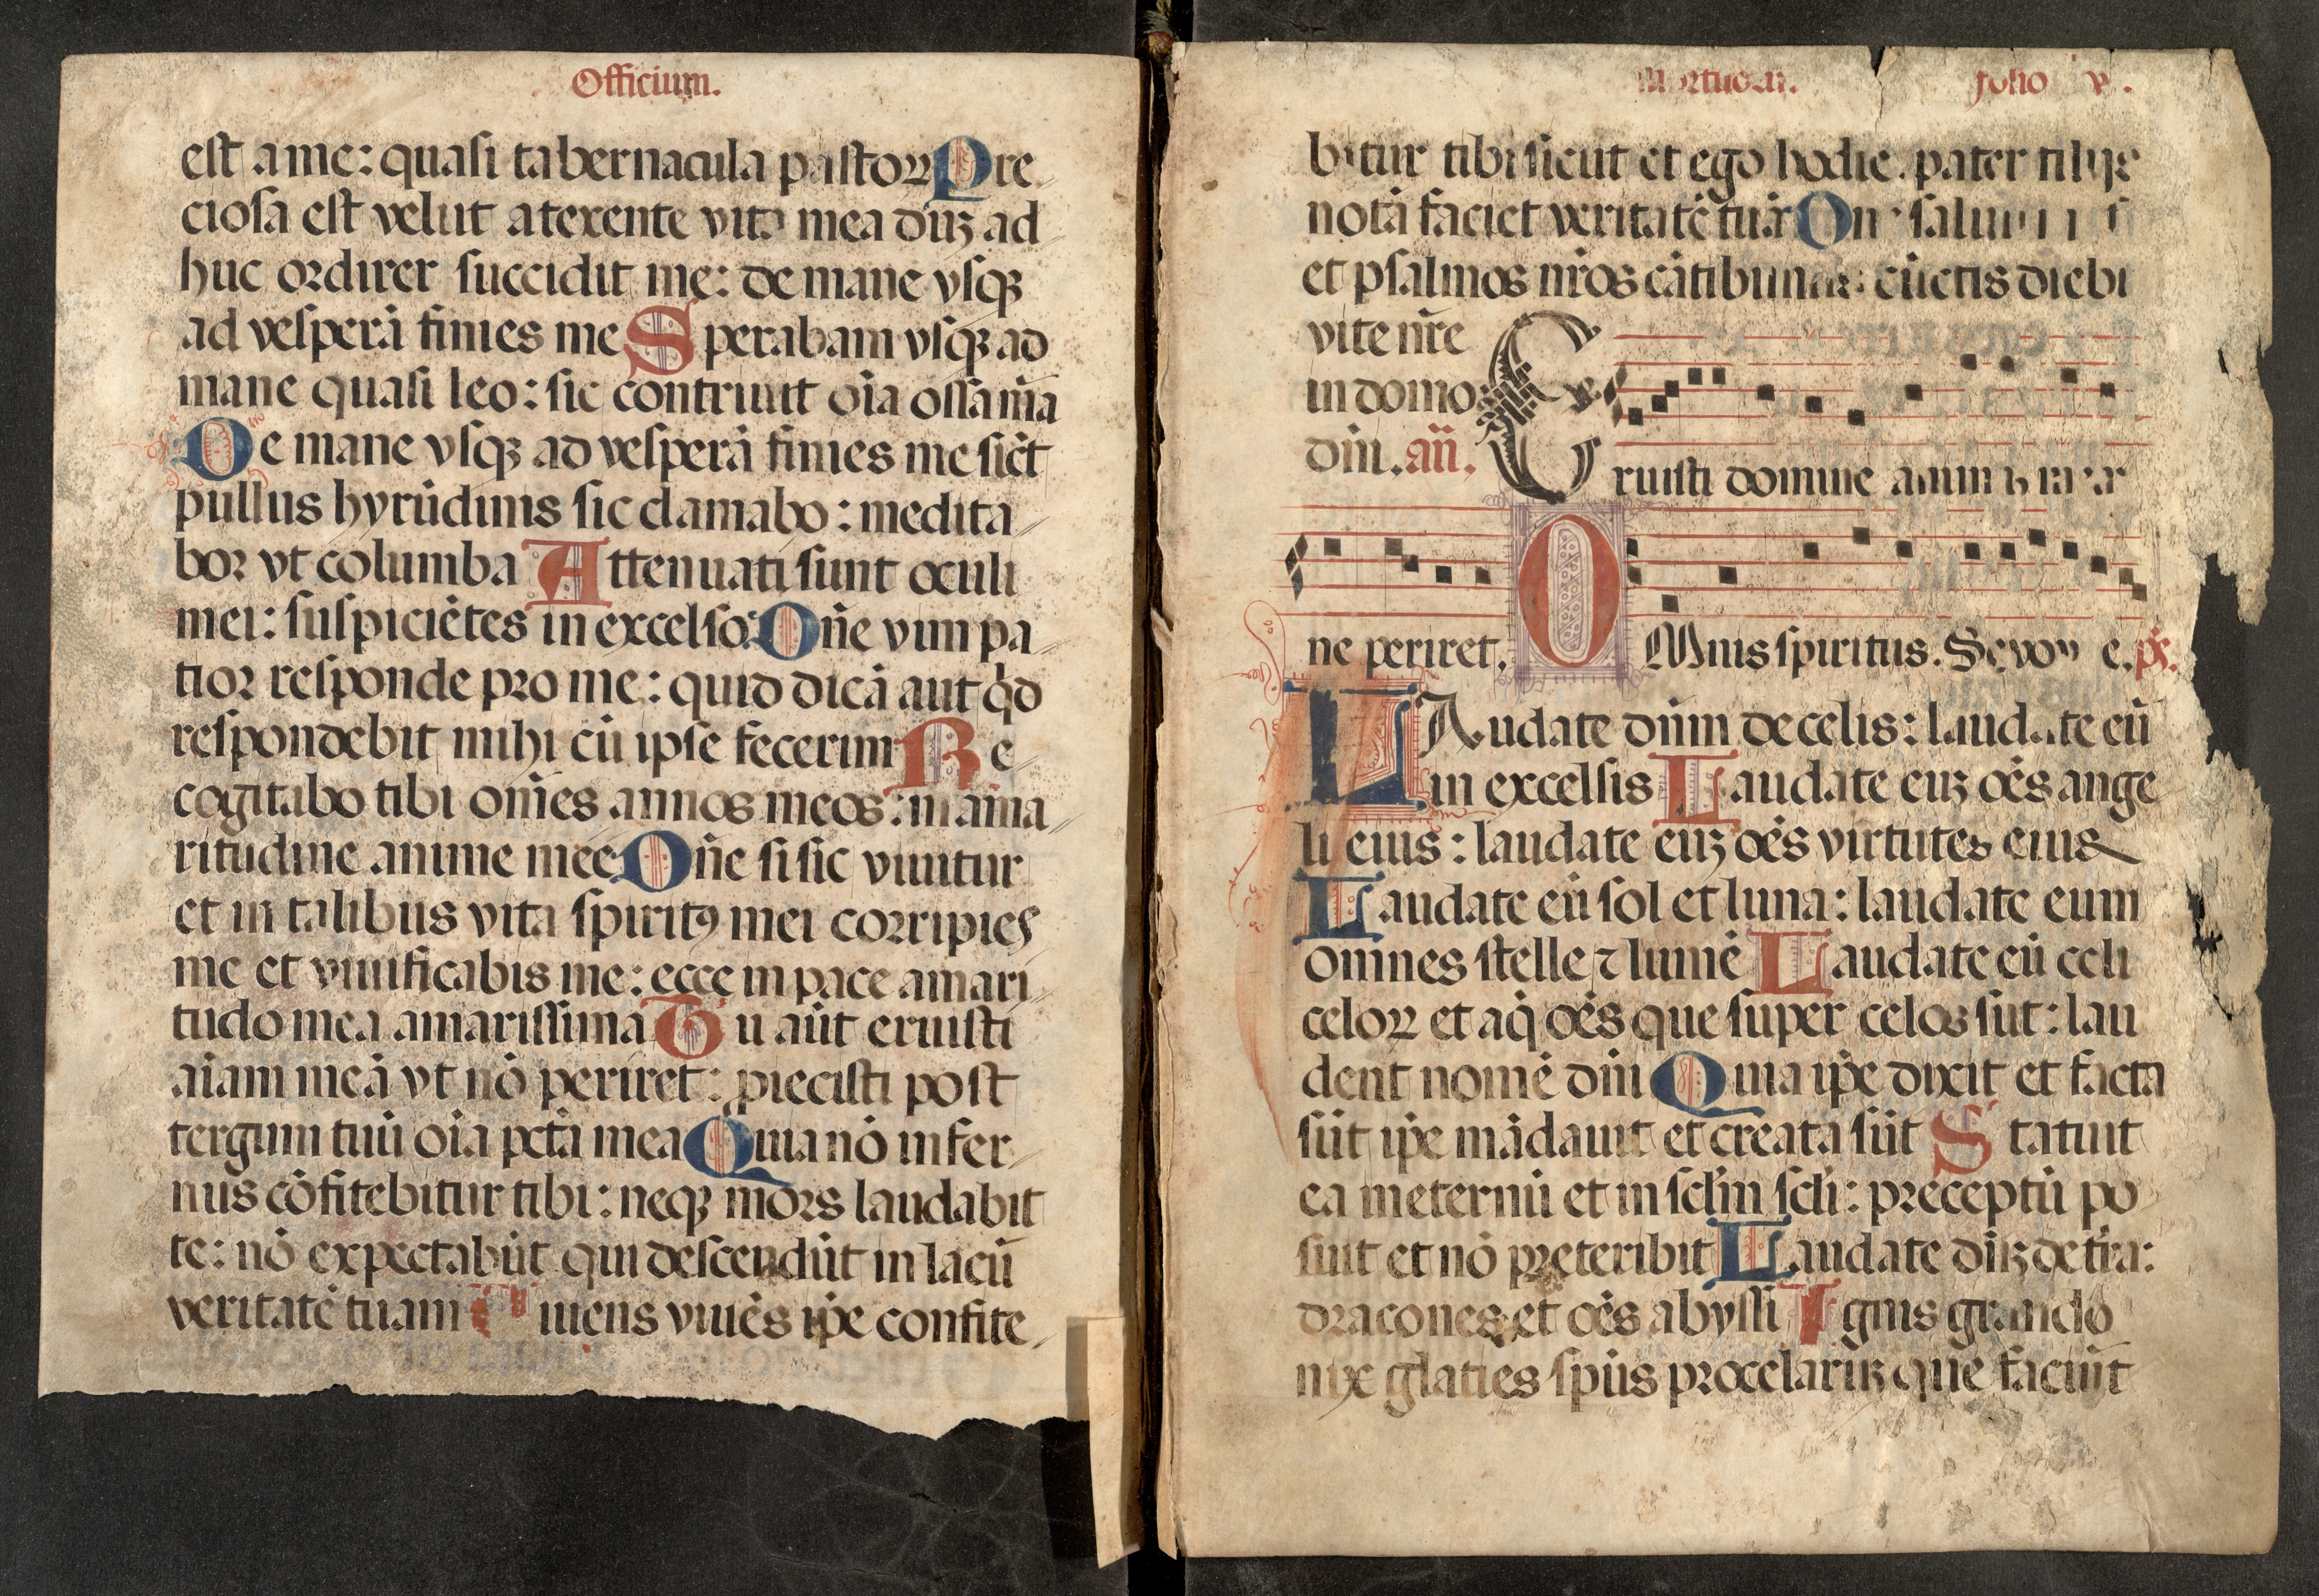 Officium.
est a me: quasi tabernacula pastoꝝ Pre
ciosa est velut a texente vita mea dūꝫ ad
huc ordirer succidit me: de mane vsqꝫ
ad vesperā finies me Sperabam vsqꝫ ad
mane quasi leo: sic contriuit oīa ossa m̄a
De mane vsqꝫ ad vesperā finies me sic̄t
pullus hyrūdinis sic clamabo: medita
bor vt columba Attenuati sunt oculi
mei: suspiciētes in excelso: Dn̄e vim pa
tior responde pro me: quid dicā aut qd̄
respondebit mihi cū ipse fecerim Re
cogitabo tibi om̄es annos meos: in ama
ritudine anime mee Dn̄e si sic viuitur
et in talibus vita spiritꝯ mei corripies
me et viuificabis me: ecce in pace amari
tudo mea amarissima Tu aūt eruisti
aīam meā vt nō periret: piecisti post
tergum tuū oīa pctā mea Quia nō infer
nus cōfitebitur tibi: neqꝫ mors laudabit
te: nō expectabūt qui descendūt in lacū
veritatē tuam iuens viuēs ip̄e confite
Mortuoꝝ. folio v.
bitur tibi sicut et ego hodie. pater filijs
notā faciet veritatē tuā Dn saluum
et psalmos nr̄os cātibimus: cūctis diebꝰ
vite nr̄e
in domo
dn̄i. an̄.
Eruisti domine animam meam
ne periret. OMnis spiritus. Seuou e. ps̄.
LAudate dn̄m de celis: laudate eū
in excelsis Laudate euꝫ oēs ange
li eius: laudate euꝫ oēs virtutes eius
Laudate eū sol et luna: laudate eum
omnes stelle ⁊ lumē Laudate eū celi
celoꝝ et aq̄ oēs que super celos sūt: lau
dent nomē dn̄i Quia ip̄e dixit et facta
sūt ip̄e mādauit et creata sūt Statuit
ea in eternū et in scl̄m scl̄i: preceptū po
suit et nō preteribit Laudate dn̄ꝫ de tr̄a:
dracones et oēs abyssi Ignis grando
nix glaties sp̄us procelaruꝫ que faciūt